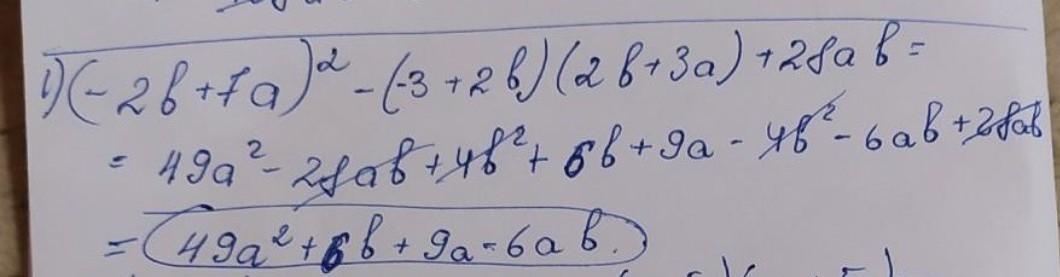 1) (-2b+7a)² - (-3+2b)(2b+3a)+28ab=
= 49a² - 28ab + 4b² + 6b + 9a - 4b² - 6ab + 28ab
= 49a² + 6b + 9a - 6ab.